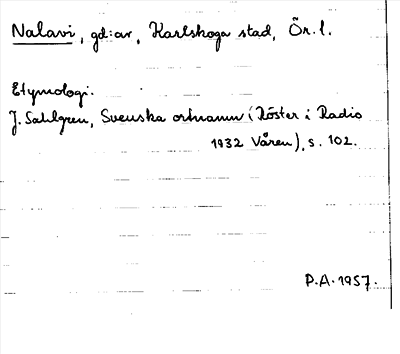 Nalavi, gd:ar, Karlskoga stad, Ör. l.
Etymologi.
J. Sahlgren, Svenska ortnamn (Röster i Radio
1932 Våren), s. 102.
P.A. 1957.